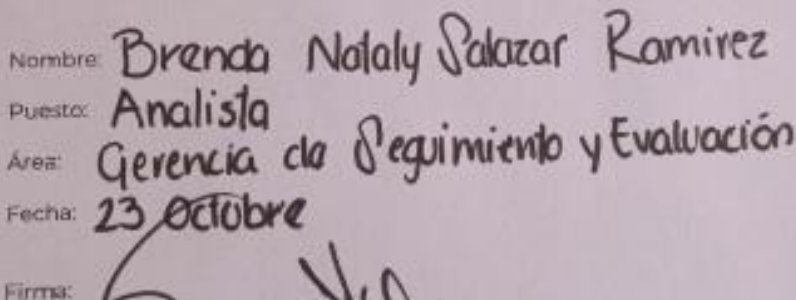 Nombre: Brenda Nataly Salazar Ramirez
Puesto: Analista
Área: Gerencia de Seguimiento y Evaluación
Fecha: 23 Octubre
Firma: